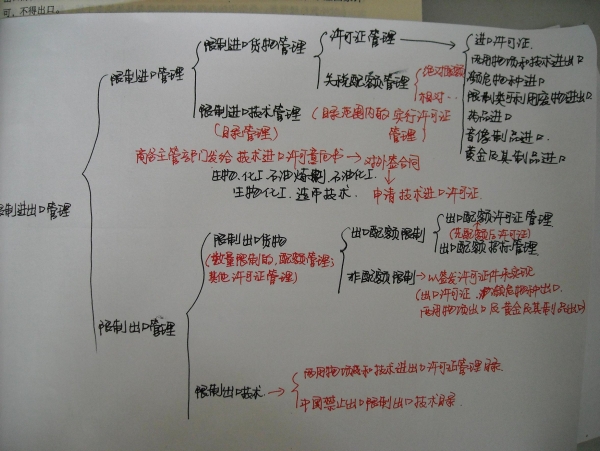 可，不得出口。
限制进出口管理
限制进口管理
限制进口货物管理
许可证管理
进口许可证
两用物项和技术进出口
濒危物种进口
限制类可利用废物进出口
药品进口
音像制品进口
黄金及其制品进口
关税配额管理
绝对配额
相对
限制进口技术管理
(目录管理)
(目录范围内的实行许可证
管理)
商务主管部门发给 技术进口许可意向书 → 对外签合同
生物、化工、石油炼制、石油化工
生物化工、造币技术.
申请技术进口许可证.
限制出口管理
限制出口货物
(数量限制的,配额管理;
其他许可证管理)
出口配额限制
出口配额许可证管理
(先配额后许可证)
出口配额招标管理
非配额限制
→ 以签发许可证件来实现
(出口许可证、濒危物种出口.
两用物项出口及黄金及其制品出口)
限制出口技术
→
两用物项和技术进出口许可证管理目录.
中国禁止出口限制出口技术目录.